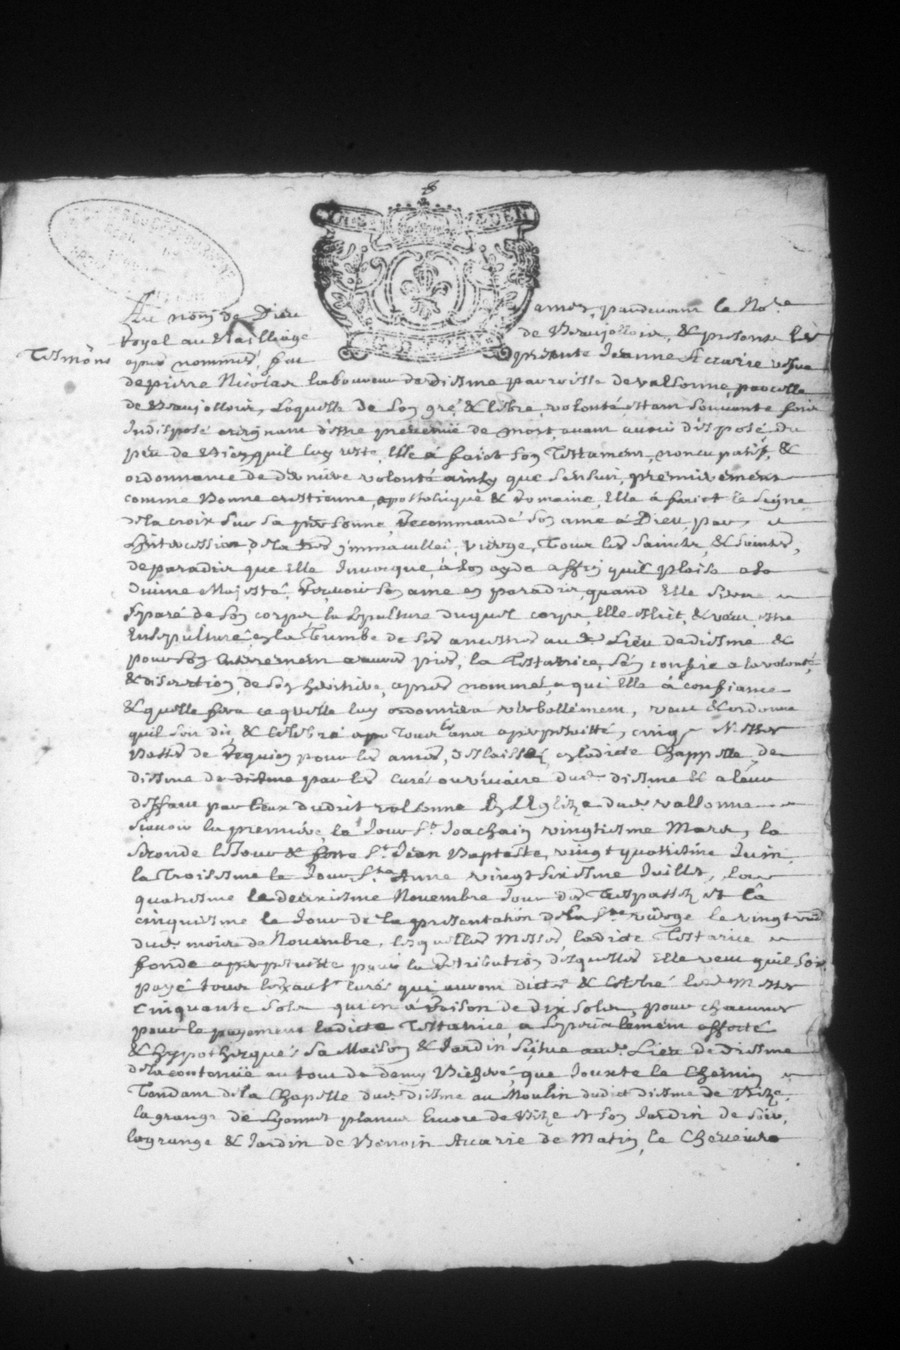 Au nom de Dieu amen, pardevant le No.re
Royal au Bailliage de Beaujollois, & presents les
Tesmoins apres nommes fut presente Jeanne Accarie vefve
de pierre Nicolas laboureur de disme parroisse de valsonne, pays
de Beaujollois, Laquelle de son gré & libre volonté estant souvante fois
Indisposé craignant d'estre prevenue de mort, avant avoir disposé du
peu de Bien quil luy reste, Elle à faict son Testament noncupatif, &
ordonnance de derniere volonté ainsy que sensuit, premierement
comme bonne crestienne apostolicque & Romaine, Elle à faict le signe
de la croix sur sa personne, Recommandé son ame à Dieu, par
L'intercession de la tres immaculleé vierge, Tous les saincts, & saintes,
de paradis que elle Invocque, à son ayde affin quil plaise a sa
divine Majesté, Recevoir son ame en paradis, quand Elle sera
separé de son corps la sepulture duquel corps, Elle eslit, & veut estre
Ensepulturé en la Tumbe de ses ancestres au d. Lieu de disme &
pour son enterrement œuvres pies, la Testatrice, s'en confie a la volonté,
& discretion, de son heritiere, apres nommeé, a qui Elle à confiance
& quelle fera ce quelle luy ordonnera verballement, veut & ordonne
quil soit dit & celebré tous les ans a perpetuitté, cinq Messes
Basses de Requiem pour les ames, en ladicte Chappelle de
disme par les curé ou vicaire dud. disme & a leur
deffaut par ceux dudit valsonne En l'Eglize dud. valsonne
scavoir la premiere, le Jour St. Joachain vingtiesme Mars, la
seconde le Jour & feste St. Jean Baptiste, vingt quatriesme Juin,
la Troisiesme le Jour Ste. Anne vingt sixiesme Juillet, la
quatriesme le deuxiesme Novembre Jour des Trespassez et la
cinquiesme le Jour de la presentation de la Ste. vierge le vingt un
dud. mois de Novembre, lesquelles Messes, ladicte Testatrice
fonde a perpetuitté pour la retribution desquelles Elle veut quil soit
payé tous les ans curés qui auront dictes & celebré lesd. Messes
Cinquante sols qui est à Raison de dix sols, pour chacunes
pour le payement ladicte Testatrice, a specialement affecté
& hypothecqué, sa Maison & Jardin, scitue aud. Lieu de disme
de la contenue au tout de demy Bicheré, que Jouxte le Chemin
Tendant de la Chapelle dud. disme au Moulin dudict disme de Bize,
la grange de planus Encore de Bize et son Jardin de soir,
la grange & Jardin de Benoist Accarie de Matin, le